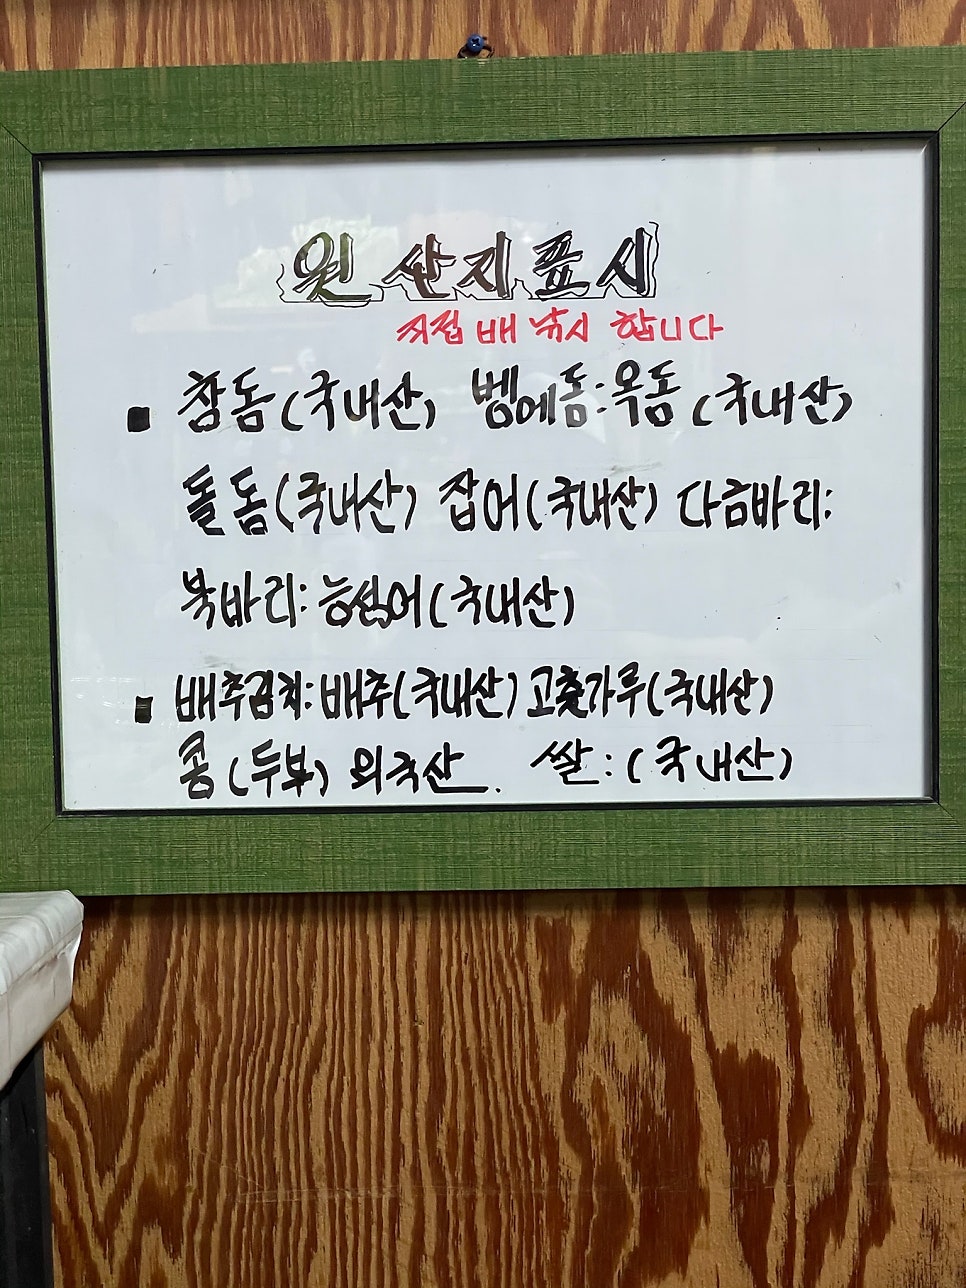 원산지표시
직접 배 낚시 합니다
■ 참돔(국내산) 벵에돔:옥돔(국내산)
돌돔(국내산) 잡어(국내산) 다금바리:
북바리:능성어(국내산)
■ 배추김치:배추(국내산)고춧가루(국내산)
콩(두부) 외국산. 쌀:(국내산)